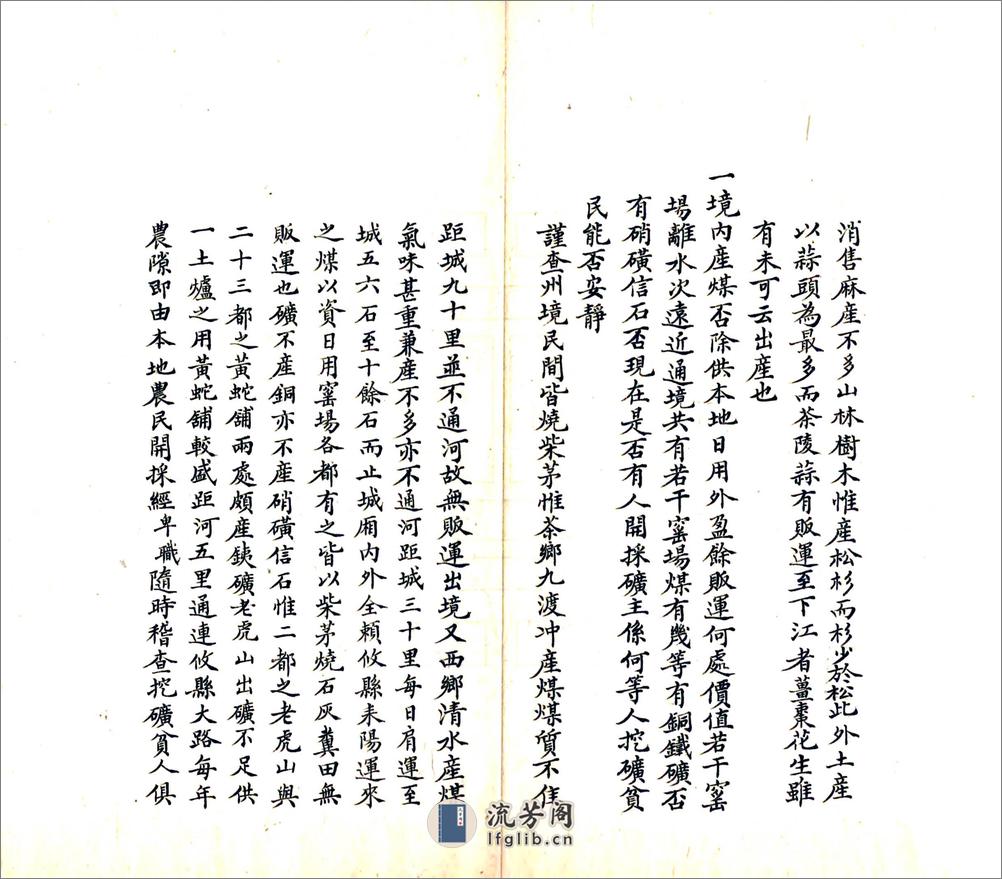 消售麻產不多山林樹木惟產松杉而杉少於松此外土產
以蒜頭為最多而茶陵蒜有販運至下江者薑棗花生雖
有未可云出產也
一境內產煤否除供本地日用外盈餘販運何處價值若干窰
場離水次遠近通境共有若干窰場煤有幾等有銅鐵礦否
有硝磺信石否現在是否有人開採礦主係何等人挖礦貧
民能否安靜
謹查州境民間皆燒柴茅惟茶鄉九渡冲產煤煤質不佳
距城九十里並不通河故無販運出境又西鄉清水產煤
氣味甚重兼產不多亦不通河距城三十里每日肩運至
城五六石至十餘石而止城厢內外全賴攸縣耒陽運來
之煤以資日用窰場各都有之皆以柴茅燒石灰糞田無
販運也礦不產銅亦不產硝磺信石惟二都之老虎山與
二十三都之黃蛇舖兩處頗產銕礦老虎山出礦不足供
一土爐之用黃蛇舖較盛距河五里通連攸縣大路每年
農隙即由本地農民開採經卑職隨時稽查挖礦貧人俱
流芳阁
lfglib.cn